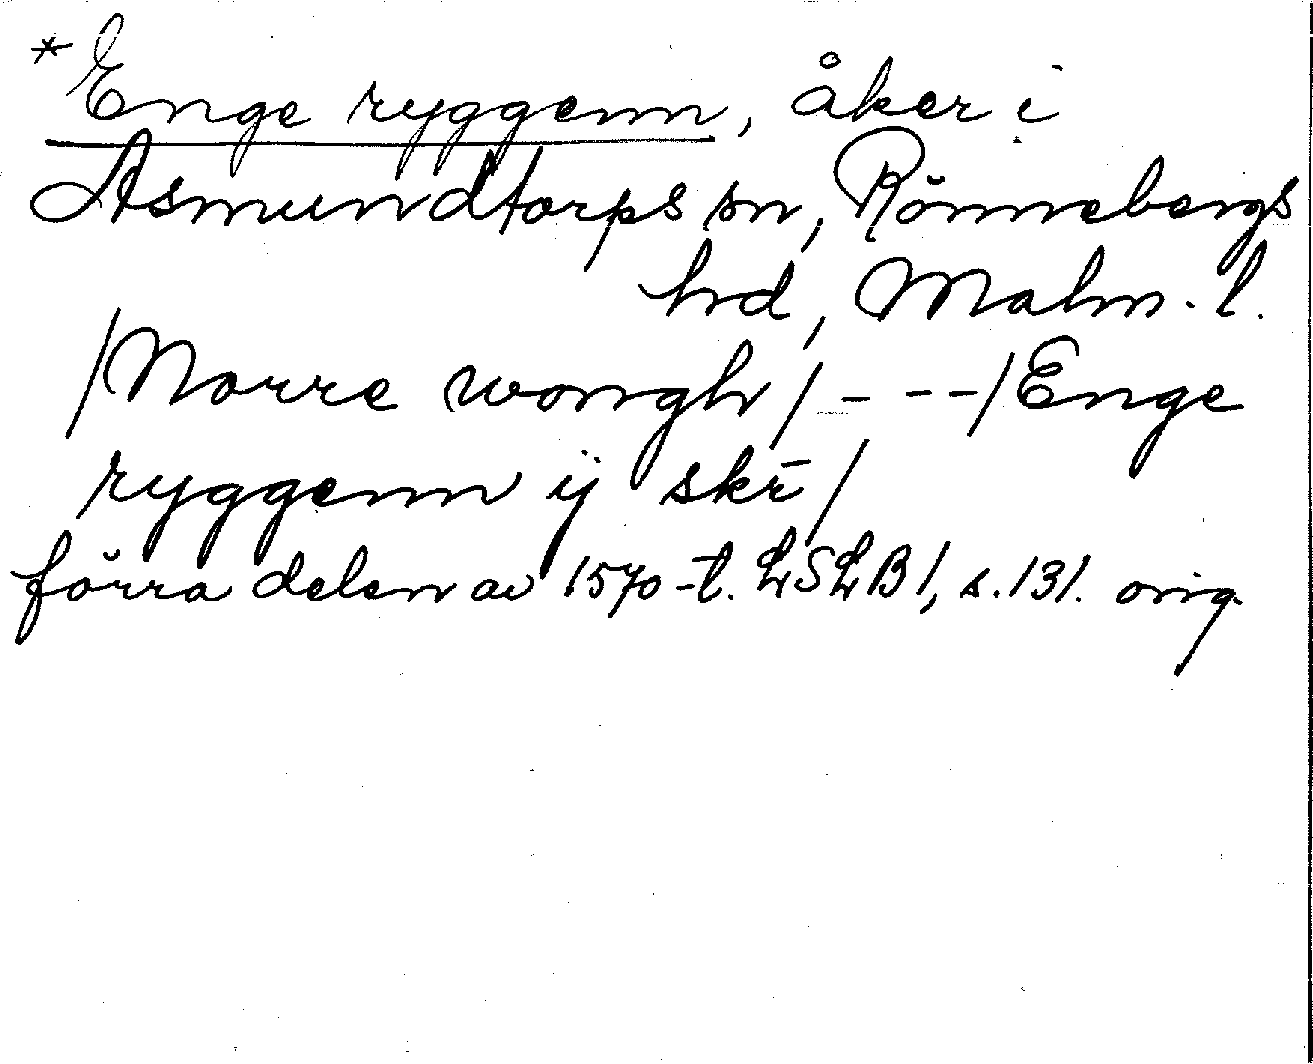 *Enge ryggenn, åker i
Asmundtorps sn, Rönnebergs
hd, Malm. l.
/Norre wongh/ - --/Enge
ryggenn ij skr̄/
förra delen av 1570-t. LSLB1, s.131. orig.